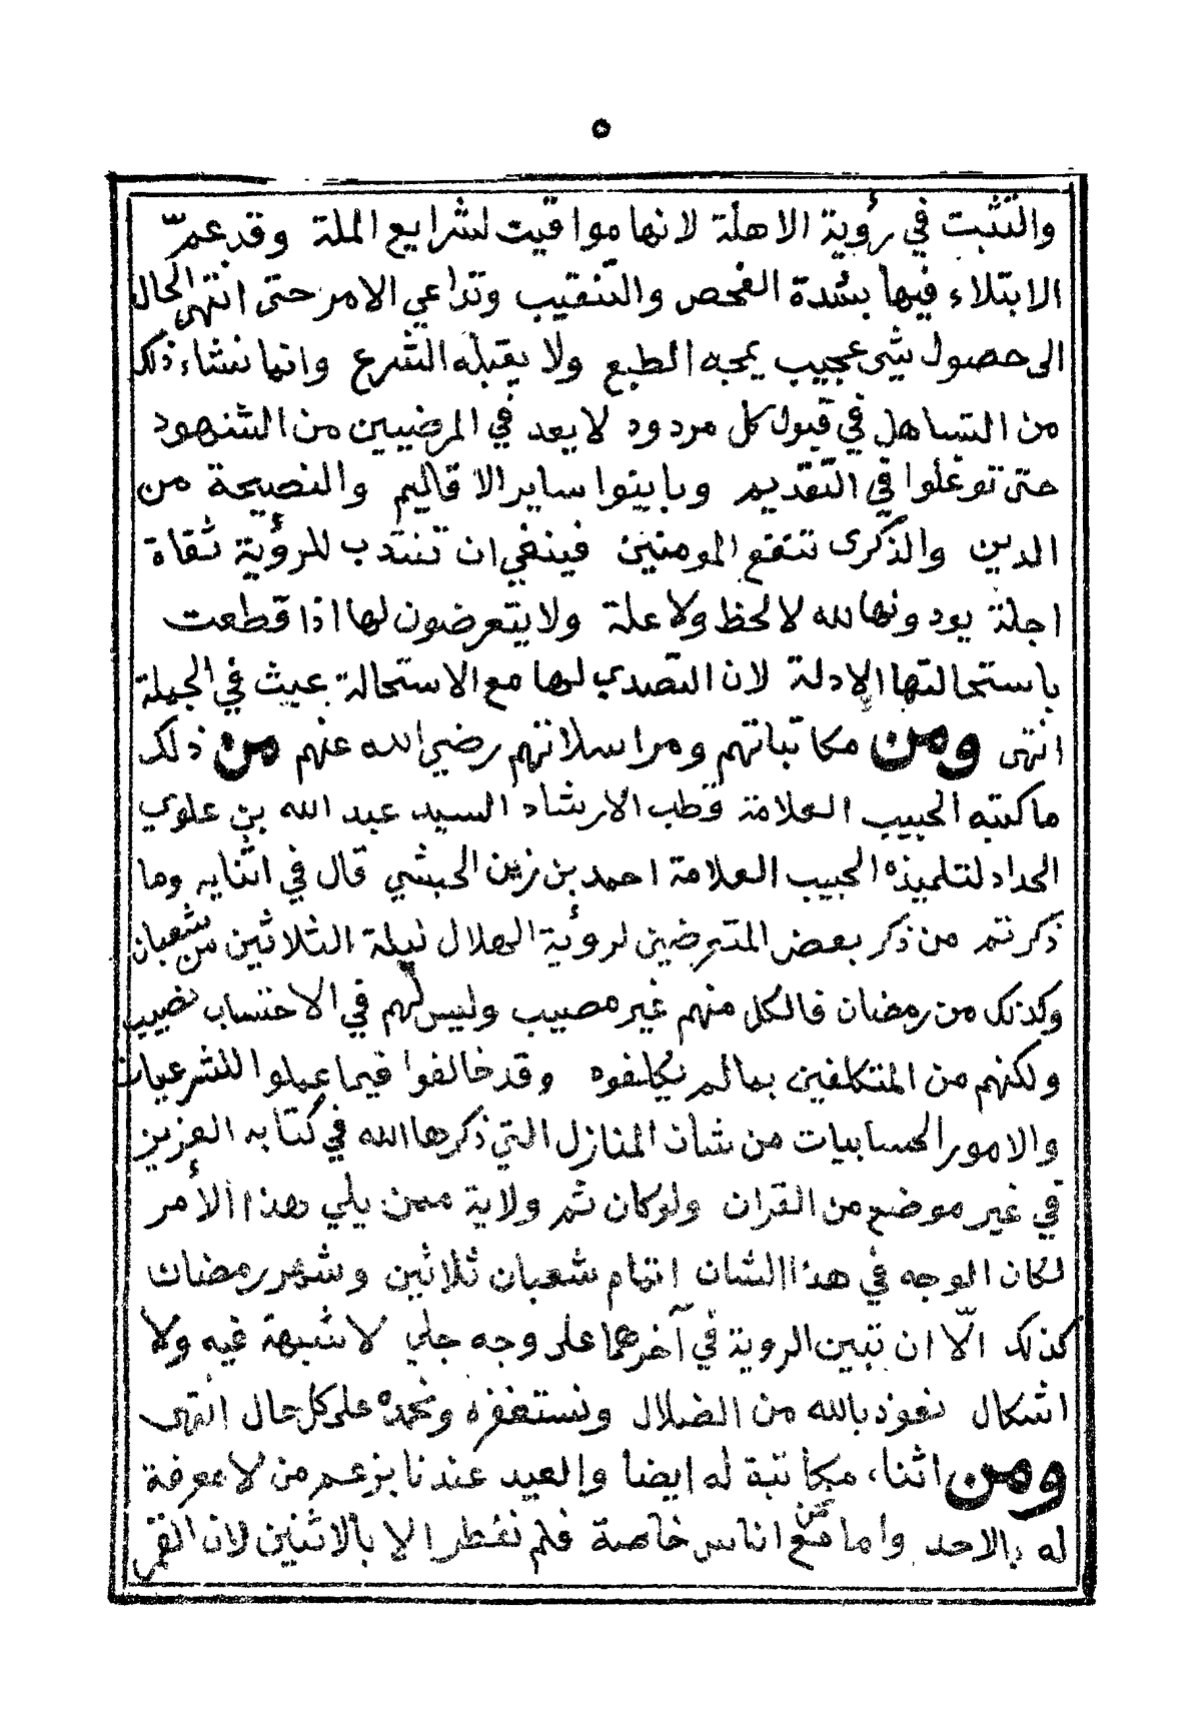 ٥
والتثبت في رؤية الاهلة لانها مواقيت لشرايع الملة وقد عمّ
الابتلاء فيها بشدة الفحص والتنقيب وتداعي الامر حتى انتهى الحال
الى حصول شي عجيب يمجه الطبع ولا يقبله الشرع وانما نشاء ذلك
من التساهل في قبول كل مردود لا يعد في المرضيين من الشهود
حتى توغلوا في التقديم وباينوا ساير الاقاليم والنصيحة من
الدين والذكرى تنفع المومنين فينغي ان تنتدب للرؤية ثقاة
اجلة يودونها لله لا لحظ ولا علة ولا يتعرضون لها اذا قطعت
باستحالتها الادلة لان التصدي لها مع الاستحالة عيث في الجملة
انتهى ومن مكاتباتهم ومراسلاتهم رضي الله عنهم من ذلك
ما كتبه الحبيب العلامة قطب الارشاد السيد عبد الله بن علوي
الحداد لتلميذه الحبيب العلامة احمد بن زين الحبشي قال في اثنايه وما
ذكرتم من ذكر بعض المتعرضين لرؤية الهلال ليلة الثلاثين من شعبان
وكذلك من رمضان فالكل منهم غير مصيب وليس لهم في الاحتساب نصيب
ولكنهم من المتكلفين بمالم يكلفوه وقد خالفوا فيما عملوا الشرعيات
والامور الحسابيات من شأن المنازل التي ذكرها الله في كتابه العزيز
في غير موضع من القران ولو كان ثم ولاية ممن يلي هذا الأمر
لكان الوجه في هذا الشان اتمام شعبان ثلاثين وشهر رمضان
كذلك الّا ان تبين الروية في آخرهما على وجه جلي لا شبهة فيه ولا
اشكال نعوذ بالله من الضلال ونستغفره ونحمده على كل حال انتهى
ومن اثناء مكاتبة له ايضا والعيد عندنا بزعم من لا معرفة
له بالاحد واما نحن مع اناس خاصة فلم نفطر الا بالاثنين لان القمر